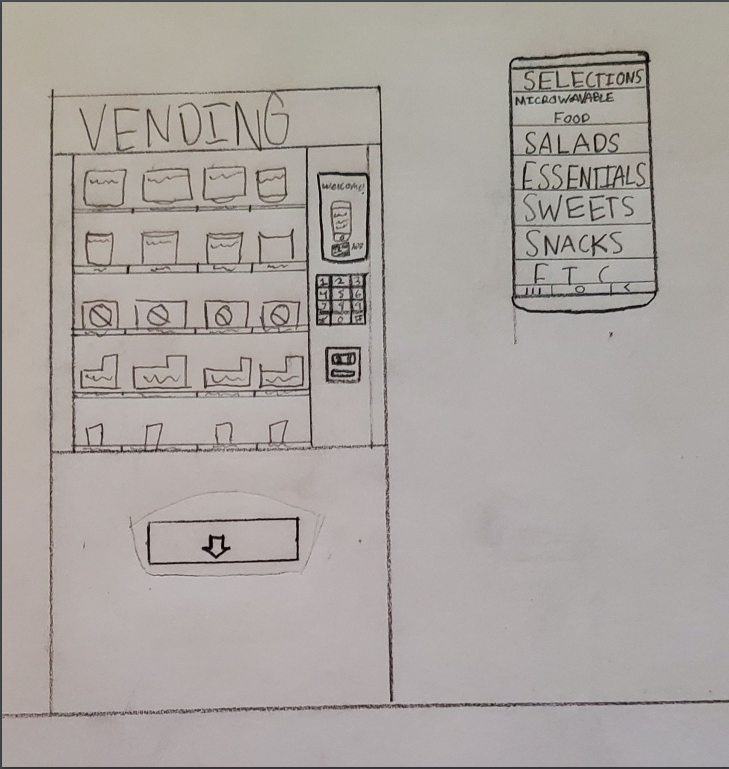 VENDING
WELCOME!
APP
1 2 3
4 5 6
7 8 9
* 0 #
SELECTIONS
MICROWAVABLE
FOOD
SALADS
ESSENTIALS
SWEETS
SNACKS
E T C